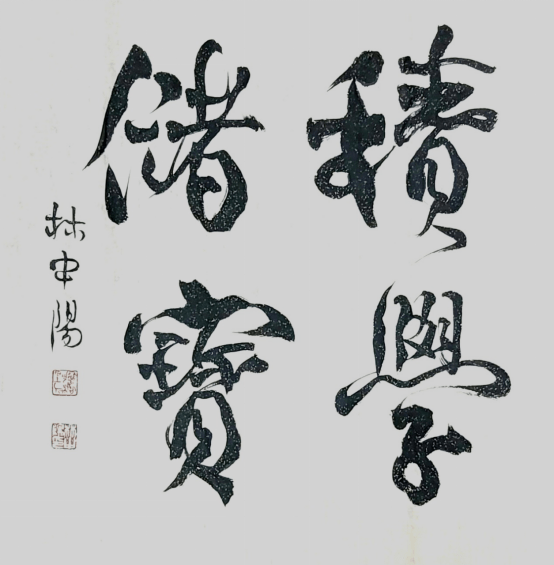 積學
儲寶
林中陽